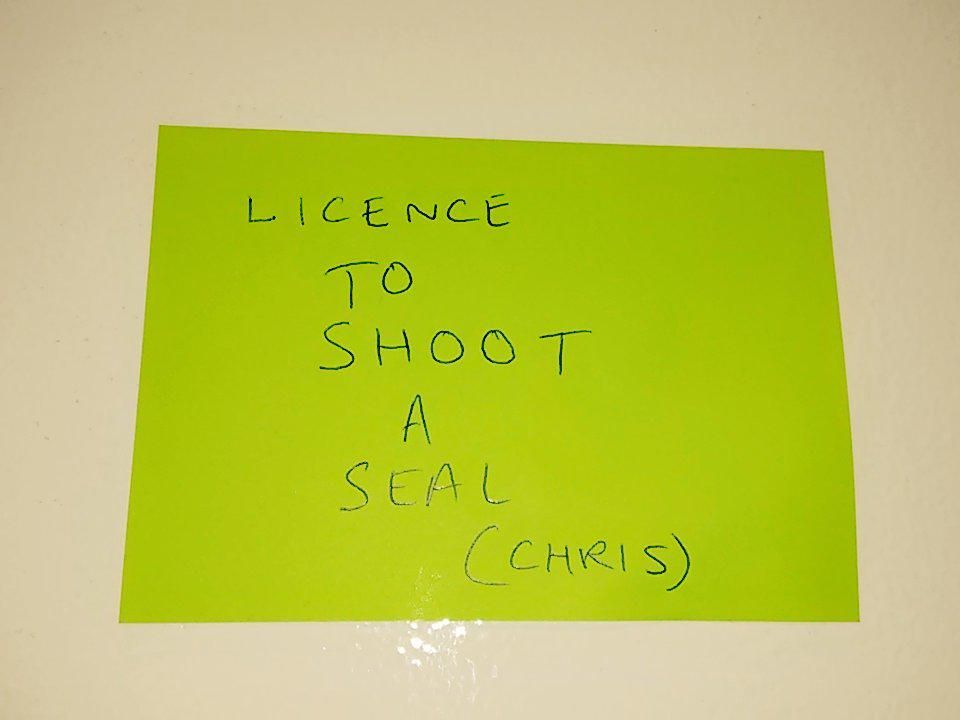 LICENCE
TO
SHOOT
A
SEAL
(CHRIS)